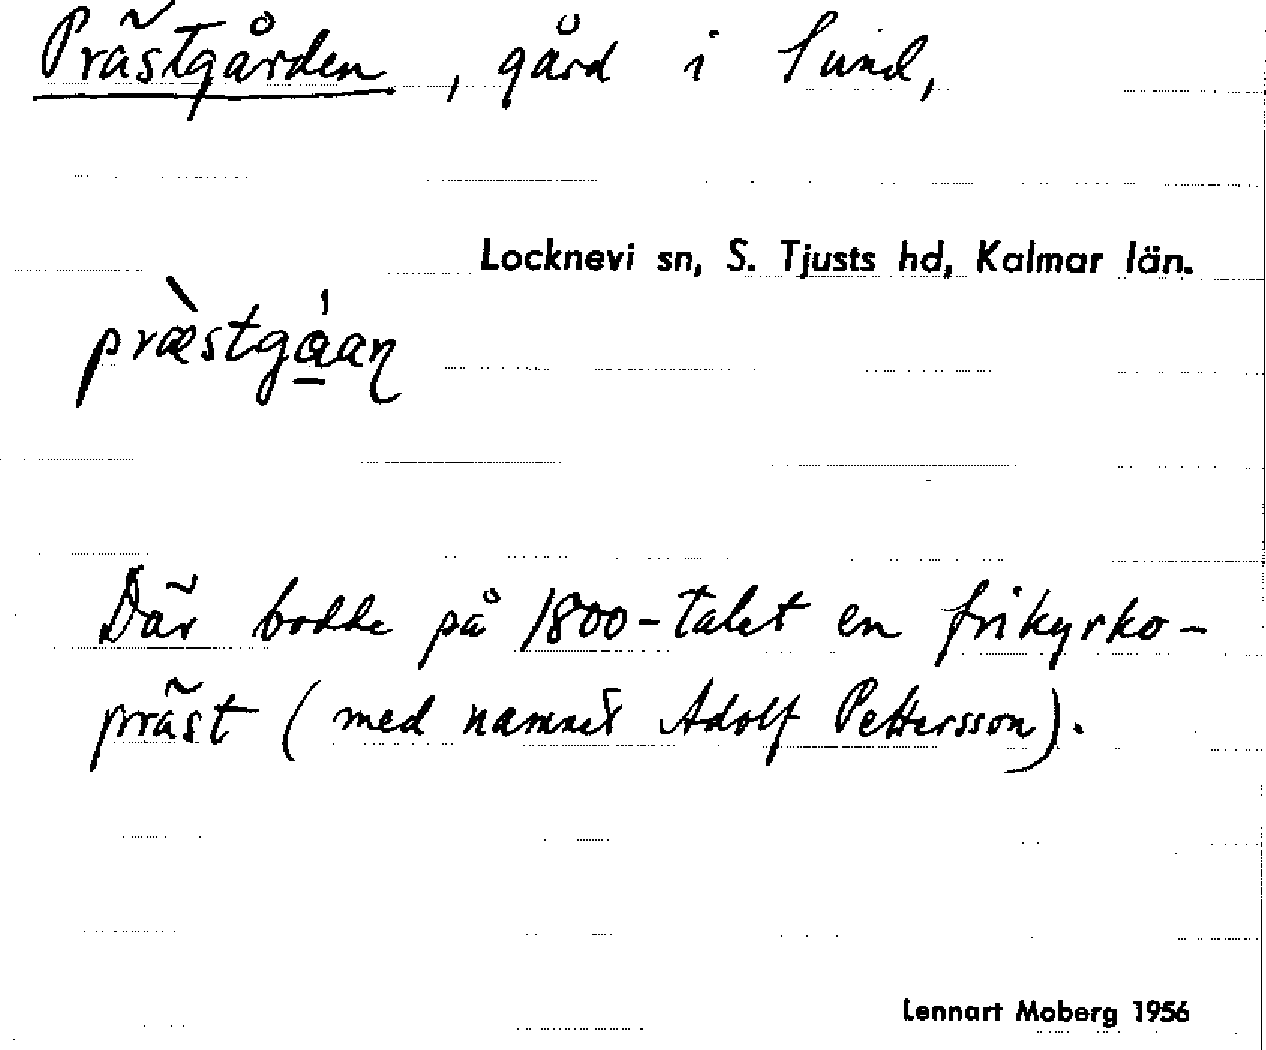 Prästgården, gård i Sund,
Locknevi sn, S. Tjusts hd, Kalmar län.
præ̀stgá̱aɳ
Där bodde på 1800-talet en frikyrko-
präst (med namnet Adolf Pettersson).
Lennart Moberg 1956